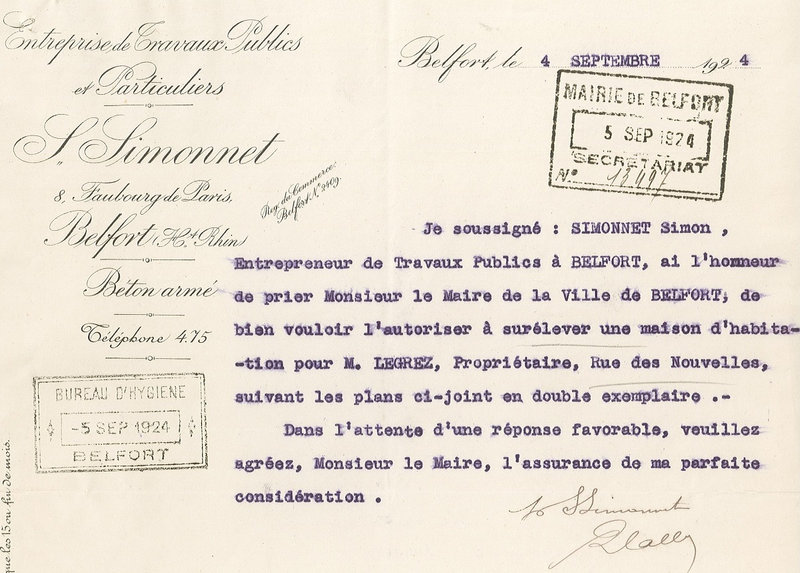 Entreprise de Travaux Publics
et Particuliers
S. Simonnet
8, Faubourg de Paris.
Belfort (Ht Rhin)
Béton armé
Téléphone 4.75
Reg. du Commerce
Belfort No 2409.
Belfort, le 4 SEPTEMBRE 1924
MAIRIE DE BELFORT
5 SEP 1924
SECRÉTARIAT
No
Je soussigné : SIMONNET Simon ,
Entrepreneur de Travaux Publics à BELFORT, ai l'honneur
de prier Monsieur le Maire de la Ville de BELFORT, de
bien vouloir l'autoriser à surélever une maison d'habita-
-tion pour M. LEGREZ, Propriétaire, Rue des Nouvelles,
suivant les plans ci-joint en double exemplaire .-
Dans l'attente d'une réponse favorable, veuillez
agréez, Monsieur le Maire, l'assurance de ma parfaite
considération .
BUREAU D'HYGIENE
-5 SEP 1924
BELFORT
Simonnet
que les 15 ou fin de mois.